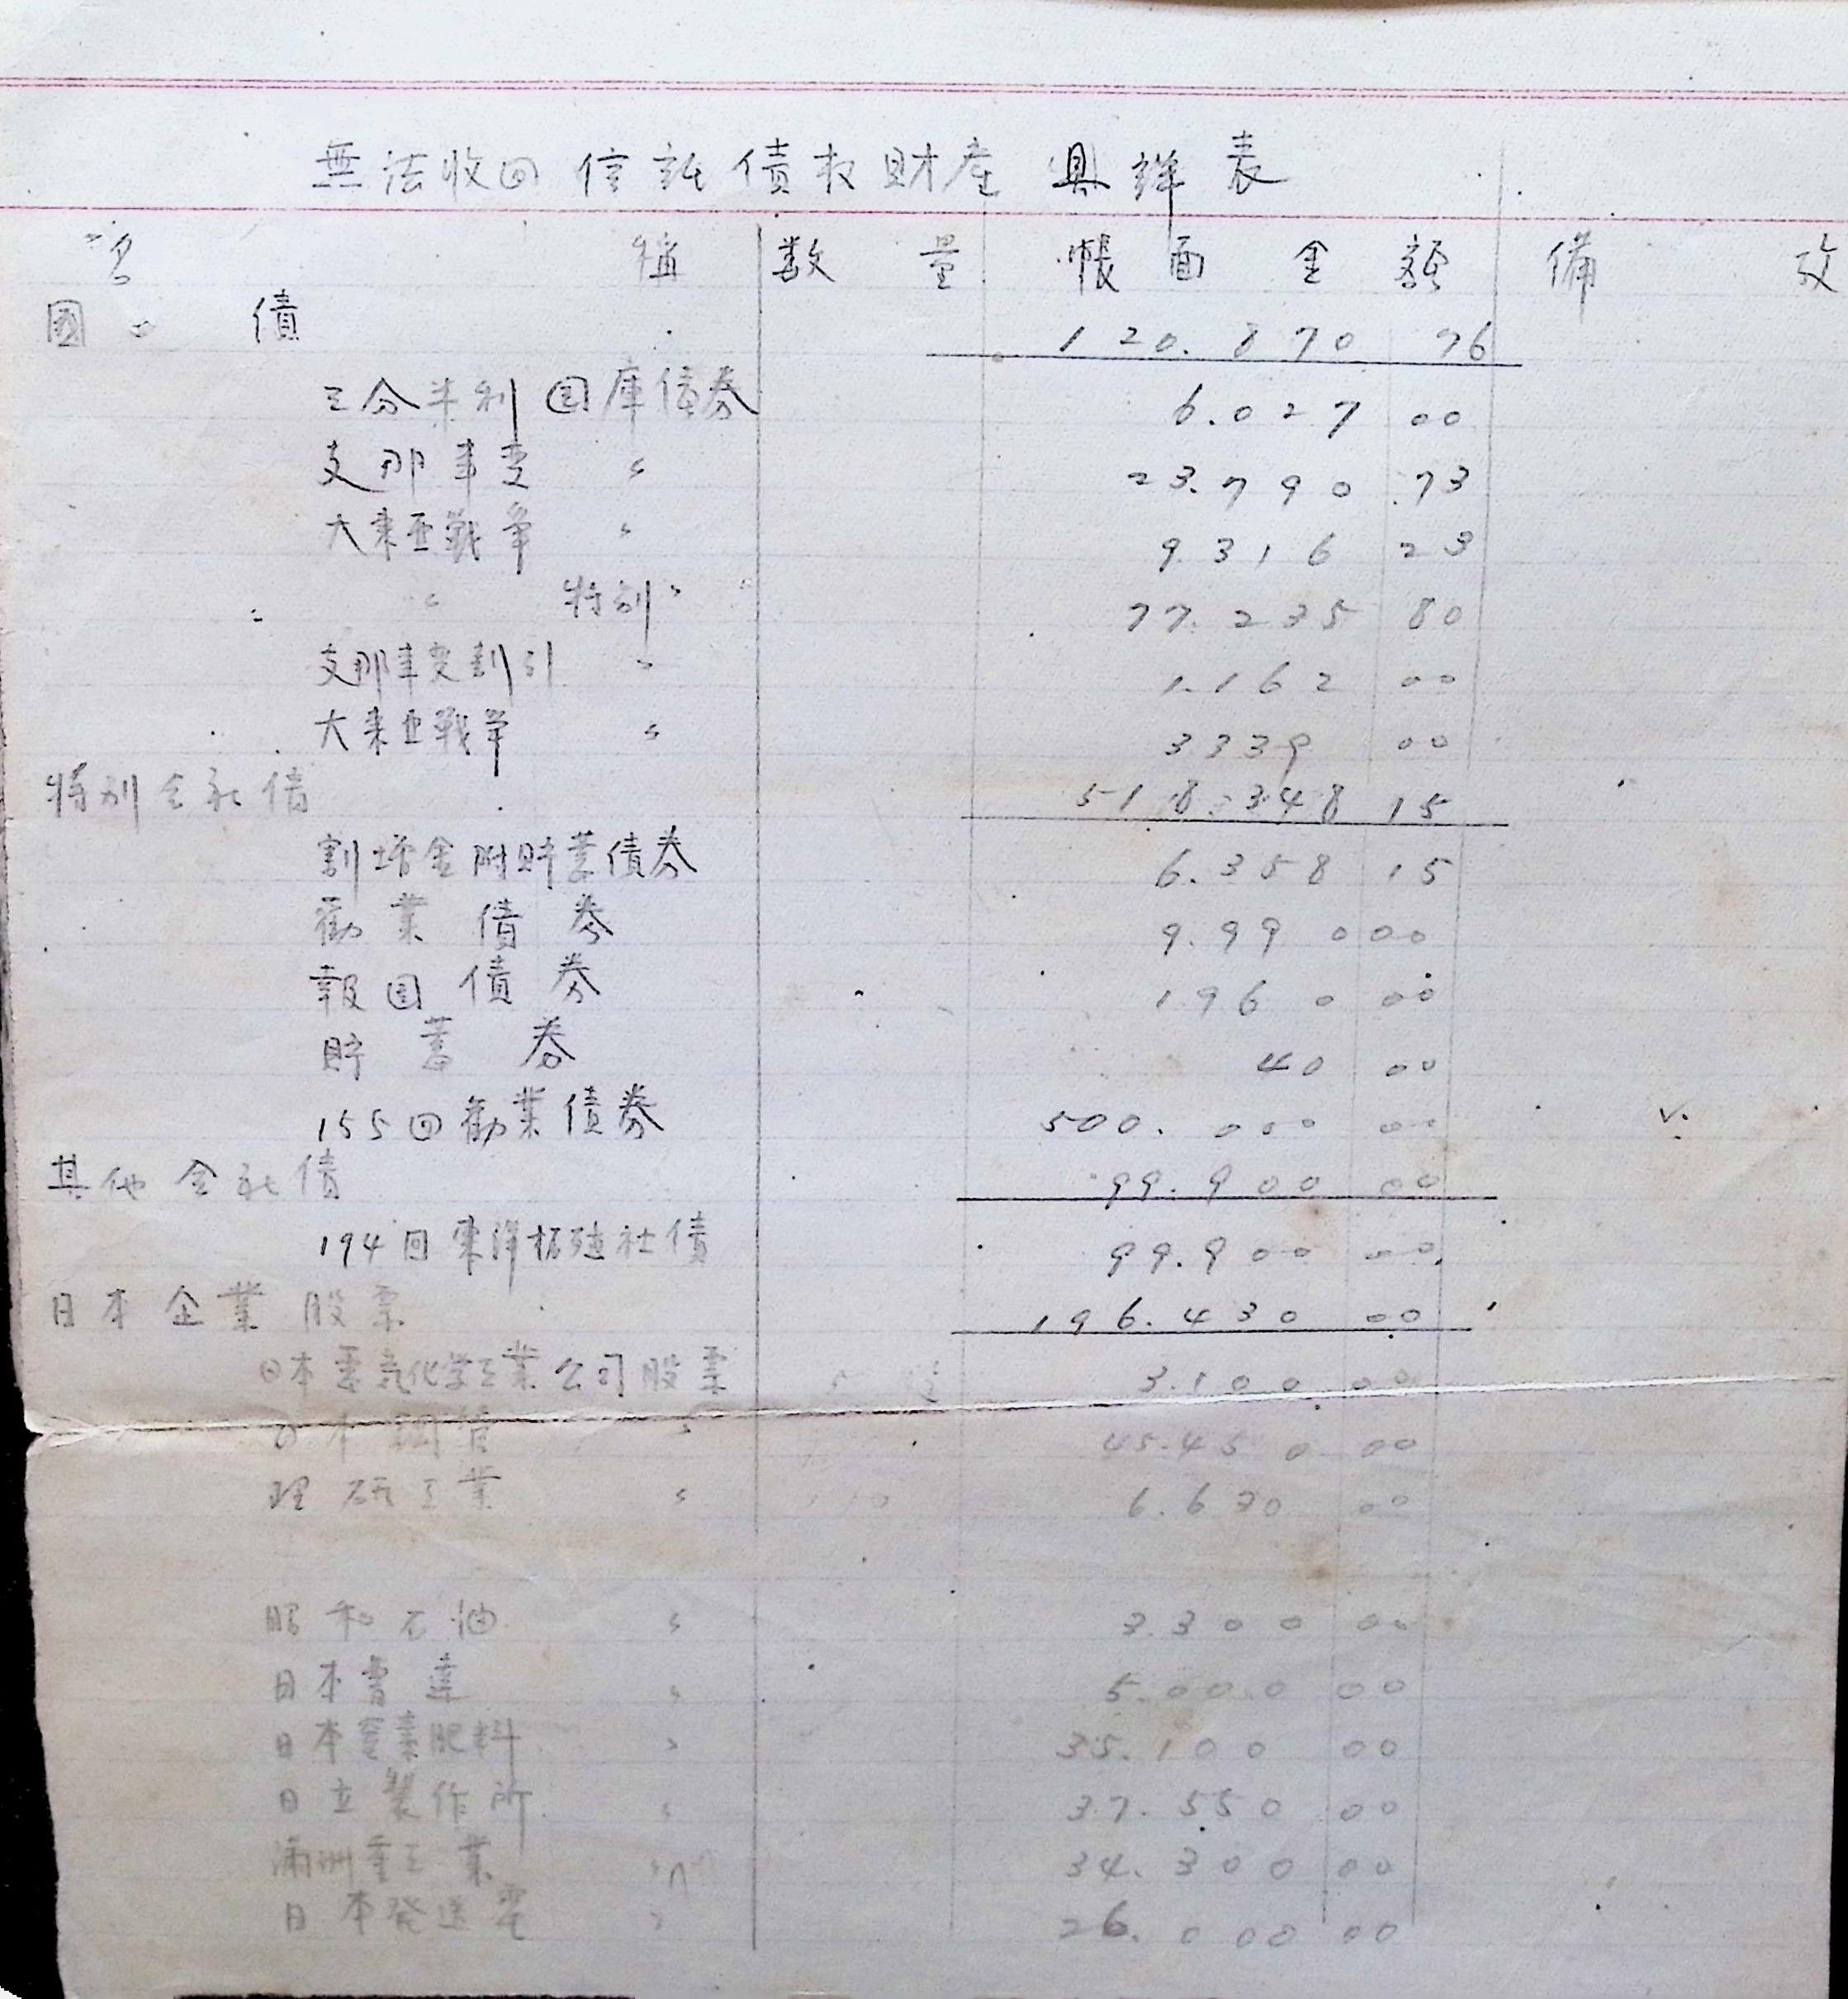 無法收回信託債权財産具詳表
名 稱 数 量 帳面金額 備 攷
國債 120.870 76
三分半利国庫債券 6.027 00
支那事変 〃 23.790 73
大東亜戦争 〃 9.316 23
〃 特別〃 77.235 80
支那事変割引 〃 1.162 00
大東亜戦争 〃 3339 00
特別会社債 518.348 15
割増金附貯蓄債券 6.358 15
勧業債券 9.990 00
報国債券 1960 00
貯蓄券 40 00
155回勧業債券 500.000 00
其他会社債 99.900 00
194回東洋拓殖社債 99.900 00
日本企業股票 196.430 00
日本電気化学工業公司股票 3.100 00
日本鋼管 〃 45.450 00
理研工業 〃 6.630 00
昭和石油 〃 3.300 00
日本曹達 〃 5.000 00
日本窒素肥料 〃 35.100 00
日立製作所 〃 37.550 00
満洲重工業 〃 34.300 00
日本発送電 〃 26.000 00